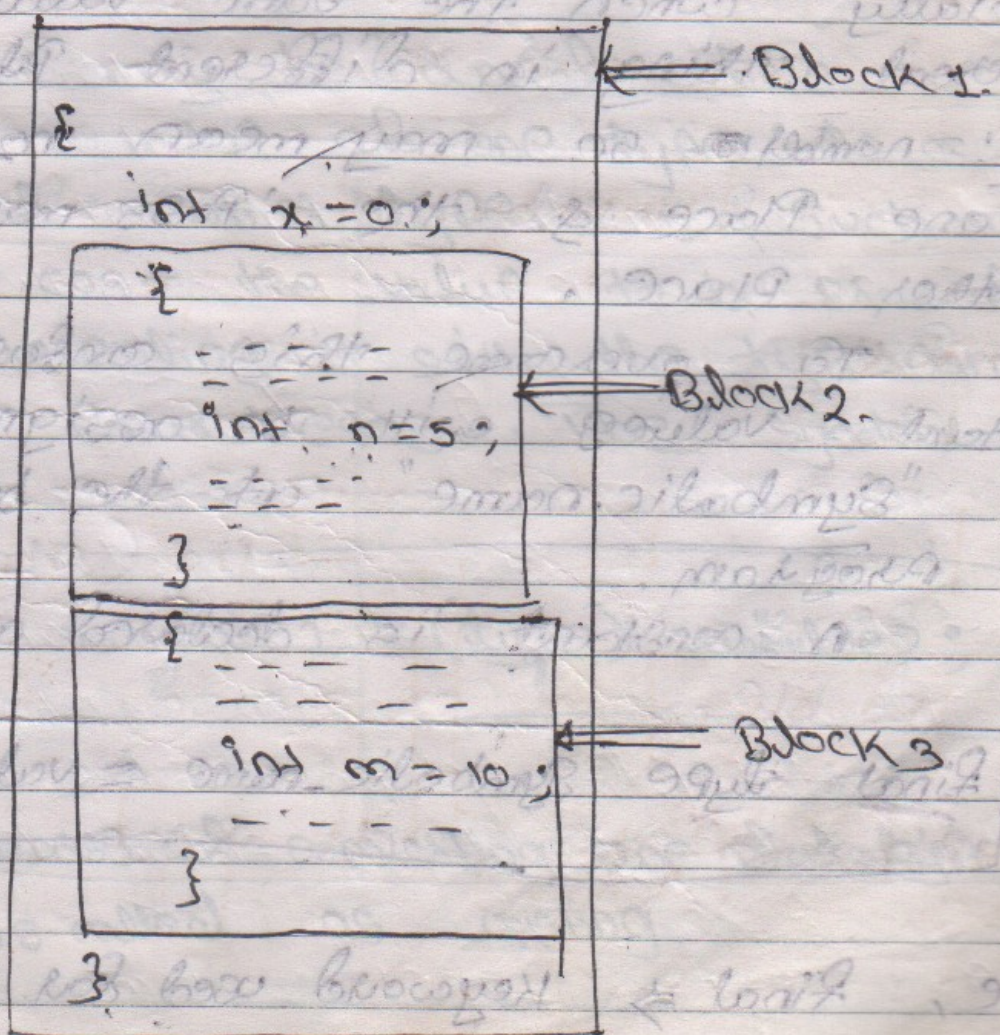 Block 1.
{
int x = 0;
{
- - - -
- - - -
int n = 5;
- - - -
- - -
}
Block 2.
{
- - - -
- - - -
int m = 10;
- - - -
}
Block 3
}